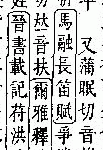 又蒲眠切音
馬融長笛賦爭
音扶爾雅釋
姓晉書載記苻洪